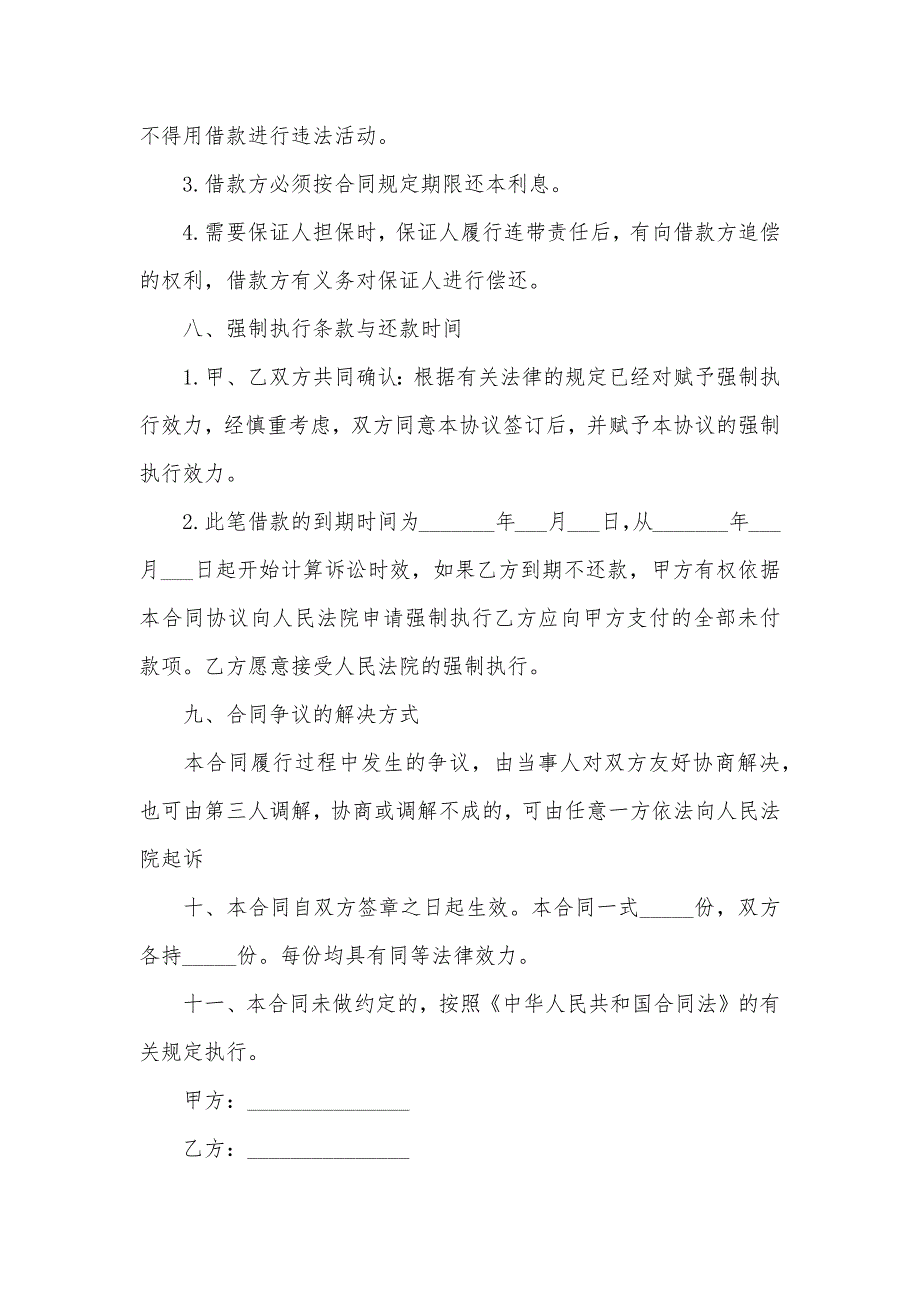 不得用借款进行违法活动。
3.借款方必须按合同规定期限还本利息。
4.需要保证人担保时，保证人履行连带责任后，有向借款方追偿
的权利，借款方有义务对保证人进行偿还。
八、强制执行条款与还款时间
1.甲、乙双方共同确认：根据有关法律的规定已经对赋予强制执
行效力，经慎重考虑，双方同意本协议签订后，并赋予本协议的强制
执行效力。
2.此笔借款的到期时间为_______年___月___日,从_______年___
月___日起开始计算诉讼时效，如果乙方到期不还款，甲方有权依据
本合同协议向人民法院申请强制执行乙方应向甲方支付的全部未付
款项。乙方愿意接受人民法院的强制执行。
九、合同争议的解决方式
本合同履行过程中发生的争议，由当事人对双方友好协商解决，
也可由第三人调解，协商或调解不成的，可由任意一方依法向人民法
院起诉
十、本合同自双方签章之日起生效。本合同一式_____份，双方
各持_____份。每份均具有同等法律效力。
十一、本合同未做约定的，按照《中华人民共和国合同法》的有
关规定执行。
甲方：_______________
乙方：_______________